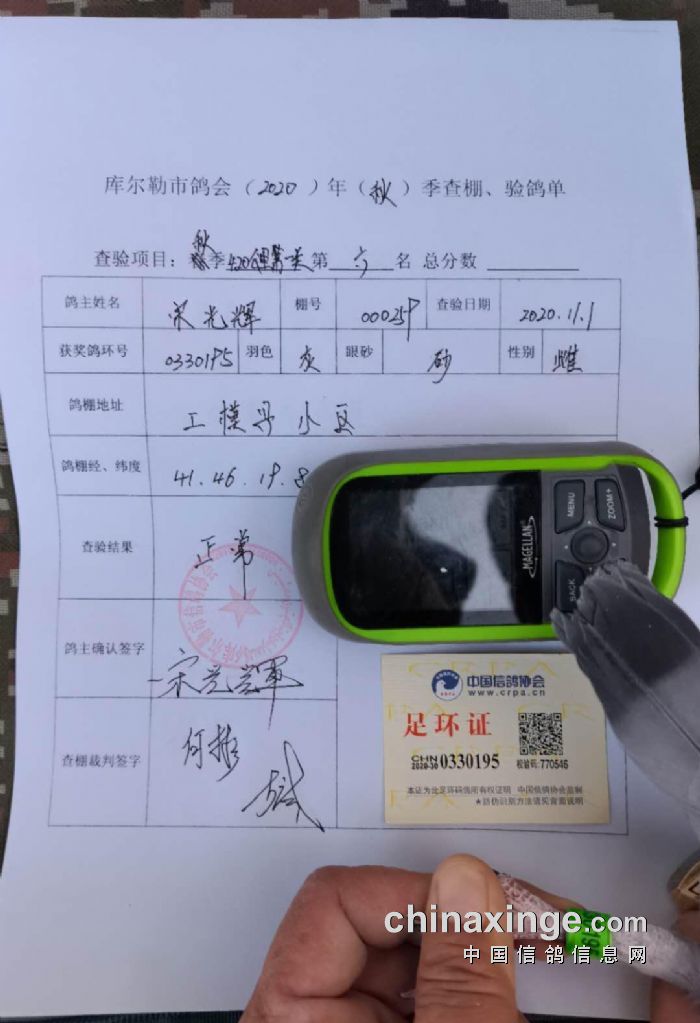 库尔勒市鸽会（2020）年（秋）季查棚、验鸽单
秋
查验项目： 季420 第 六 名 总分数
鸽主姓名 宋光辉 棚号 000259 查验日期 2020.11.1
获奖鸽环号 0330195 羽色 灰 眼砂 砂 性别 雌
鸽棚地址 工模 小区
鸽棚经、纬度 41.46.19.8
查验结果 正常
鸽主确认签字 宋
查棚裁判签字 何
MENU
ZOOM+
MAGELLAN
BACK
CRPA
中国信鸽协会
www.crpa.cn
足环证
CHN
2020-30 0330195
校验码: 770546
本证为此足环码信鸽所有权证明 中国信鸽协会监制
★防伪识别方法请见背面说明
chinaxinge.com
中国信鸽信息网